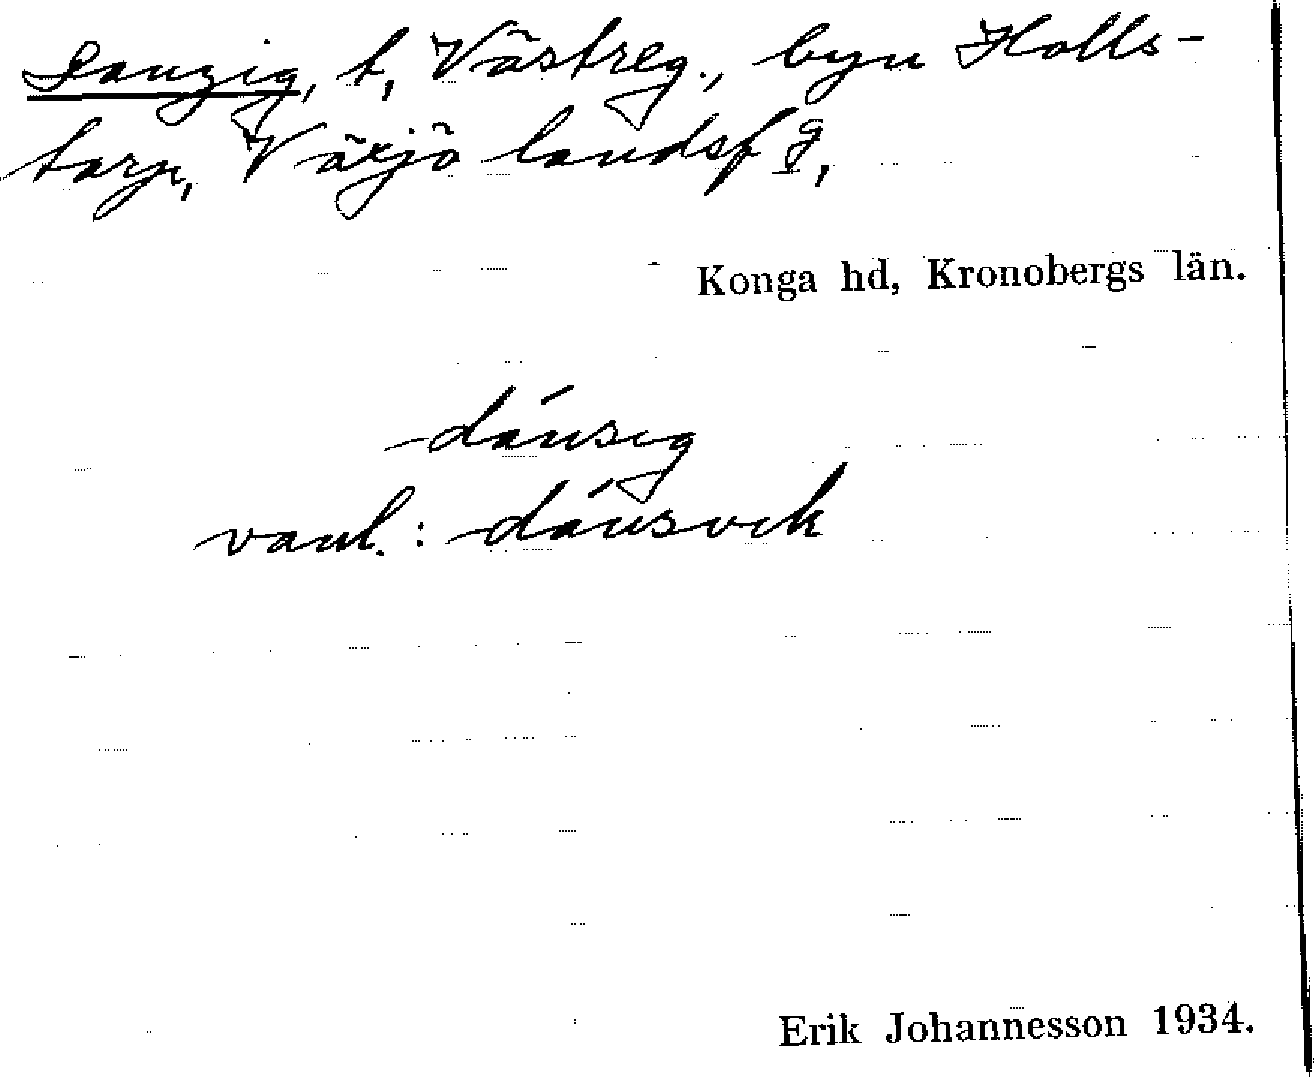 Danzig, t, Västreg., byn Holls-
torp, Växjö landsf g,
Konga hd, Kronobergs län.
dánsig
vanl.: dánsvik
Erik Johannesson 1934.